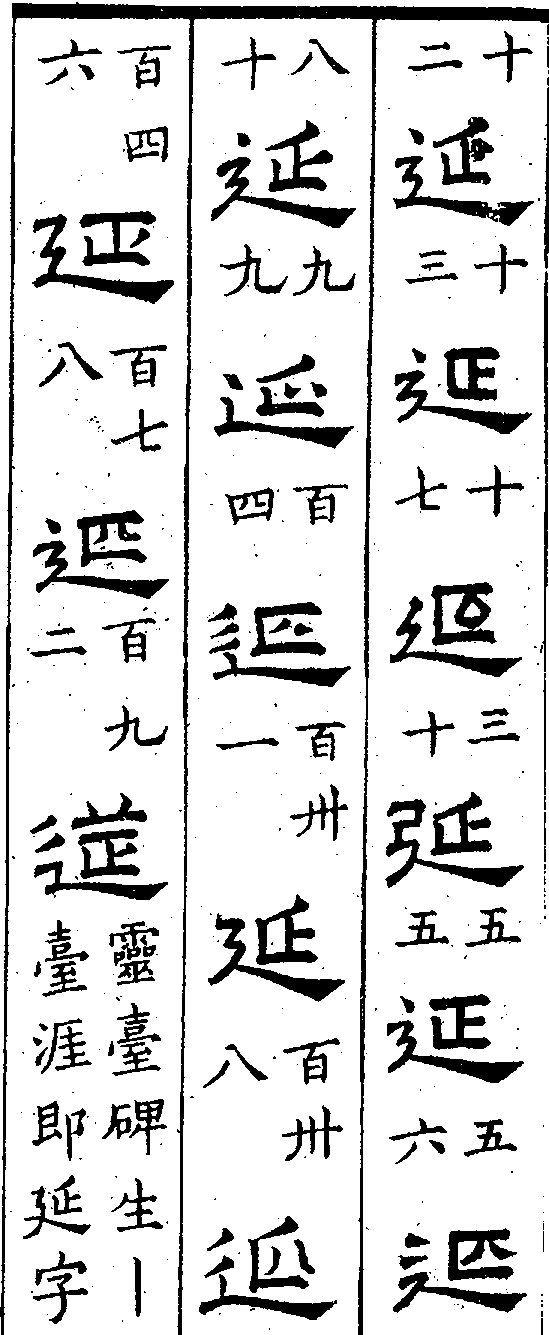 十二延十三延十七延三十延五五延五六延
八十延九九延百四延百卅一延百卅八延
百四六延百七八延百九二靈臺碑生丨臺涯即延字